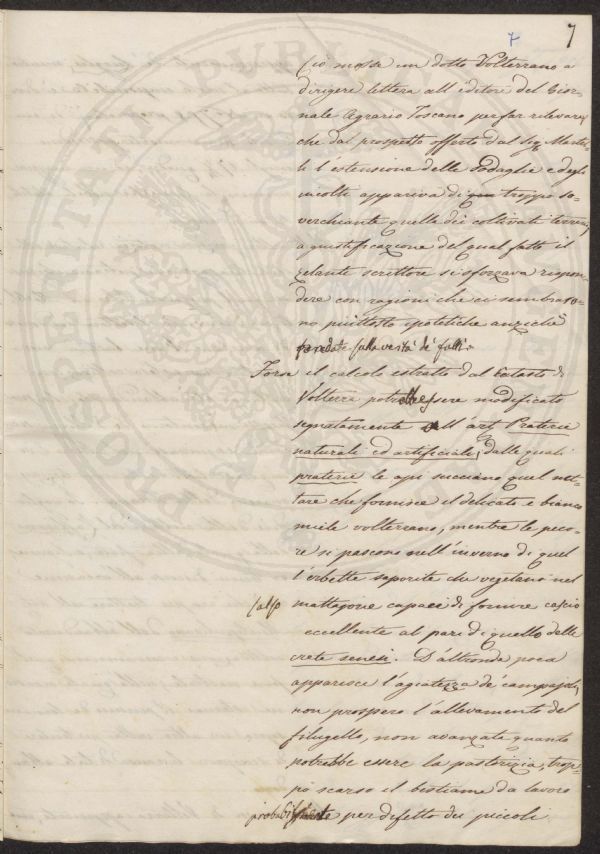 7 7
Ciò mosse un dotto Volterrano a
dirigere lettera all'editore del Gior-
nale Agrario Toscano per far rilevare,
che dal prospetto offerto dal Sig. Martel-
li l'estensione delle Sodaglie e degli
incolti appariva di troppo so-
verchiante quella dei coltivati terreni,
a giustificazione del qual fatto il
zelante scrittore si sforzava rispon-
dere con ragioni che ci sembraro-
no piuttosto ipotetiche anzichè
fondate sulla verità de' fatti.
Forse il calcolo estratto dal Catasto di
Volterra potrebbe essere modificato
segnatamente all'art. Praterie
naturali ed artificiali, dalle quali
praterie le api succiano quel net-
tare che fornisce il delicato e bianco
miele volterrano, mentre le peco-
re si pascono nell'inverno di quel
l'erbette saporite che vegetano nel
mattajone capaci di fornire cacio
/alfo
eccellente al pari di quello delle
crete senesi. D'altronde poca
apparisce l'agiatezza de' campajoli,
non prospero l'allevamento del
filugello, non avanzata quanto
potrebbe essere la pastorizia, trop-
po scarso il bestiame da lavoro
probabilmente per difetto dei piccoli
PROSPERITATI PUBLICAE